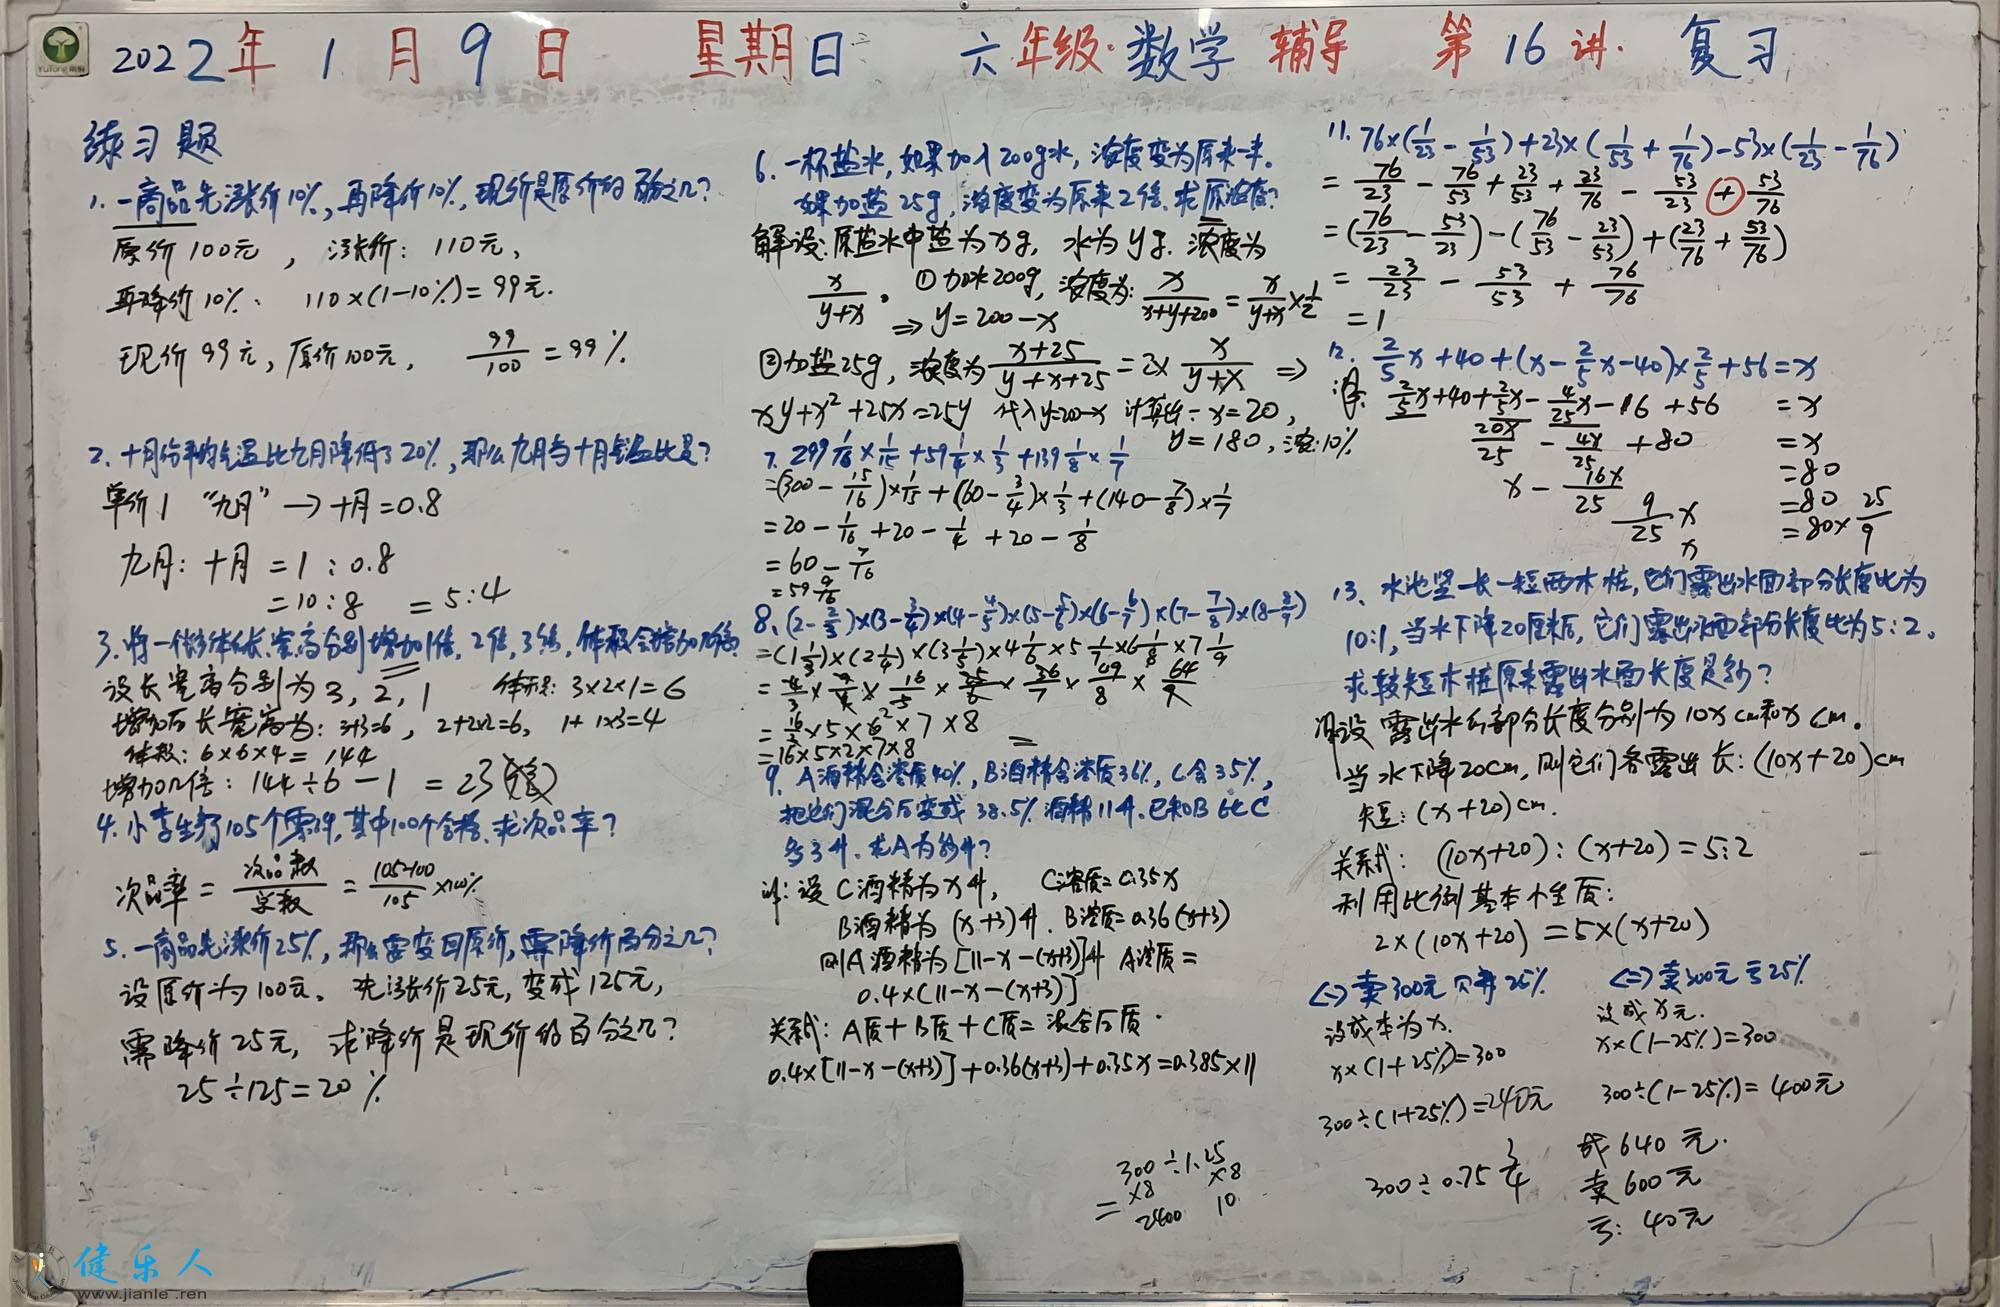 2022年1月9日 星期日 六年级·数学 辅导 第16讲. 复习
练习题
1. 一商品先涨价10%, 再降价10%, 现价是原价的百分之几?
原价100元, 涨价: 110元,
再降价10%. 110×(1-10%)=99元.
现价99元, 原价100元, 99/100 = 99%.
2. 十月份平均气温比九月降低了20%, 那么九月与十月气温比是?
单价1 "九月" → 十月=0.8
九月: 十月 = 1 : 0.8
= 10 : 8 = 5:4
3. 将一个长方体长、宽、高分别增加1倍, 2倍, 3倍, 体积会增加几倍
设长宽高分别为3, 2, 1 体积: 3×2×1=6
增加后长宽高为: 3+3=6, 2+2×2=6, 1+1×3=4
体积: 6×6×4=144
增加几倍: 144÷6-1 = 23(倍)
4. 小李生产了105个零件, 其中100个合格. 求次品率?
次品率 = 次品数/总数 = 105-100/105 ×100%
5. 一商品先涨价25%, 那么要变回原价, 需降价百分之几?
设原价为100元. 先涨价25元, 变成125元,
需降价25元, 求降价是现价的百分之几?
25÷125=20%
6. 一杯盐水, 如果加入200g水, 浓度变为原来一半.
如果加盐25g, 浓度变为原来2倍. 求原浓度?
解设: 原盐水中盐为xg, 水为yg. 浓度为
x/y+x. ①加水200g, 浓度为: x/x+y+200 = x/y+x × 1/2
⇒ y=200-x
②加盐25g, 浓度为 x+25/y+x+25 = 2× x/y+x ⇒
xy+x²+25x=25y 代入y=200-x 计算出: x=20,
y=180, 浓:10%
7. 299 1/16 × 1/15 + 59 1/4 × 1/3 + 139 1/8 × 1/7
=(300-15/16)×1/15+(60-3/4)×1/3+(140-7/8)×1/7
=20-1/16+20-1/4+20-1/8
=60-7/16
=59 9/16
8. (2-2/3)×(3-3/4)×(4-4/5)×(5-5/6)×(6-6/7)×(7-7/8)×(8-8/9)
=(1 1/3)×(2 1/4)×(3 1/5)×4 1/6×5 1/7×6 1/8×7 1/9
=4/3×9/4×16/5×25/6×36/7×49/8×64/9
=16/3×5×6²×7×8
=16×5×2×7×8
9. A酒精含溶质40%, B酒精含溶质36%, C含35%,
把它们混合后变成38.5%酒精11升. 已知B比C
多3升. 求A为多少升?
解: 设C酒精为x升, C溶质=0.35x
B酒精为(x+3)升. B溶质=0.36(x+3)
则A酒精为[11-x-(x+3)]升 A溶质=
0.4×[11-x-(x+3)]
关系式: A质+B质+C质=混合后质.
0.4×[11-x-(x+3)]+0.36(x+3)+0.35x=0.385×11
300÷1.25
×8 ×8
= 2400 10
11. 76×(1/23-1/53)+23×(1/53+1/76)-53×(1/23-1/76)
=76/23-76/53+23/53+23/76-53/23+53/76
=(76/23-53/23)-(76/53-23/53)+(23/76+53/76)
=23/23-53/53+76/76
=1
12. 2/5x+40+(x-2/5x-40)×2/5+56=x
解. 2/5x+40+2/5x-4/25x-16+56 =x
20x/25-4x/25+80 =x
x-16x/25 =80
9/25x =80
x =80×25/9
13. 水池竖一长一短两木桩, 它们露出水面部分长度比为
10:1, 当水下降20厘米后, 它们露出水面部分长度比为5:2.
求较短木桩原来露出水面长度是多少?
解设露出水的部分长度分别为10x cm和x cm.
当水下降20cm, 则它们各露出长: (10x+20)cm
短: (x+20)cm.
关系式: (10x+20):(x+20)=5:2
利用比例基本性质:
2×(10x+20)=5×(x+20)
<一>卖300元 25%
设成本为x.
x×(1+25%)=300
300÷(1+25%)=240元
300÷0.75 3/4
<二>卖300元亏25%
设成x元.
x×(1-25%)=300
300÷(1-25%)=400元
成640元.
卖600元
亏: 40元
健乐人
www.jianle.ren